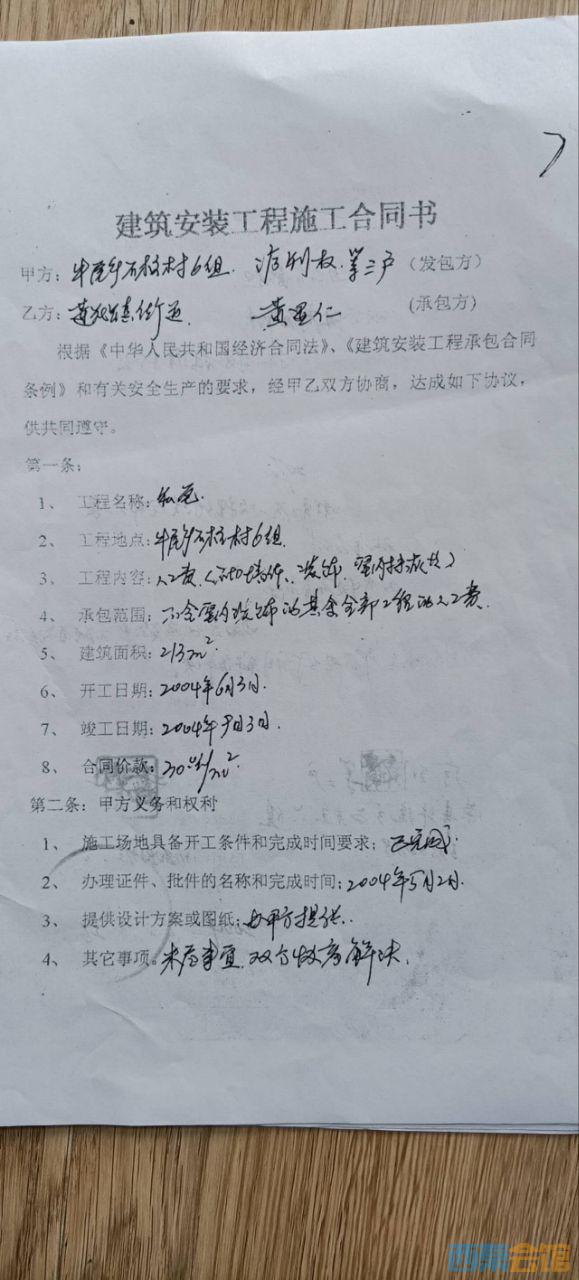 建筑安装工程施工合同书
甲方：牛尾乡石柱村6组. 权.等三户（发包方）
乙方： 街道. 黄 仁 (承包方)
根据《中华人民共和国经济合同法》、《建筑安装工程承包合同
条例》和有关安全生产的要求，经甲乙双方协商，达成如下协议，
供共同遵守。
第一条：
1、 工程名称:私宅.
2、 工程地点:牛尾乡石柱村6组.
3、 工程内容:人工费
4、 承包范围:不含室内装饰的其余全部工程的人工费.
5、 建筑面积:213m².
6、 开工日期:2004年6月3日.
7、 竣工日期:2004年9月3日.
8、 合同价款: /m²
第二条：甲方义务和权利
1、 施工场地具备开工条件和完成时间要求；已完成.
2、 办理证件、批件的名称和完成时间:2004年5月2日.
3、 提供设计方案或图纸:由甲方提供.
4、 其它事项。未尽事宜.双方协商解决.
西祠会馆